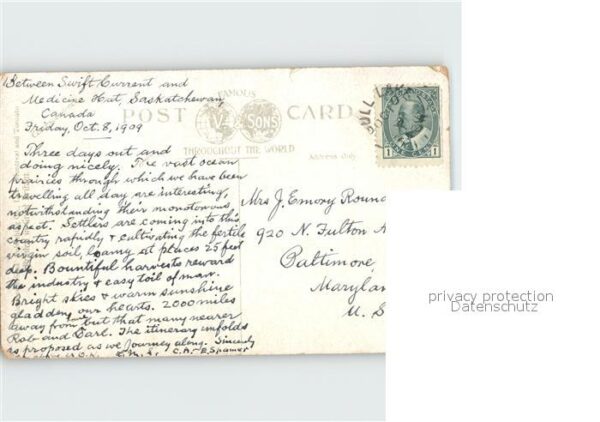 Between Swift Current and
Medicine Hat, Saskatchewan,
Canada
Friday, Oct. 8, 1909
FAMOUS
POST CARD
SONS
THROUGHOUT THE WORLD
Address Only
GULL LAKE
1 1
Three days out and
doing nicely. The vast ocean
prairies through which we have been
travelling all day are interesting,
notwithstanding their monotonous
aspect. Settlers are coming into this
country rapidly & cultivating the fertile
virgin soil, loamy at places 25 feet
deep. Bountiful harvests reward
the industry & easy toil of man.
Bright skies & warm sunshine
gladden our hearts. 2000 miles
away from but that many nearer
Rob and Earl. The itinerary unfolds
as proposed as we journey along. Sincerely
C.A. & E. Spamer
Mrs J. Emory Roun
920 N. Fulton A
Baltimore,
Marylan
U. S
privacy protection
Datenschutz